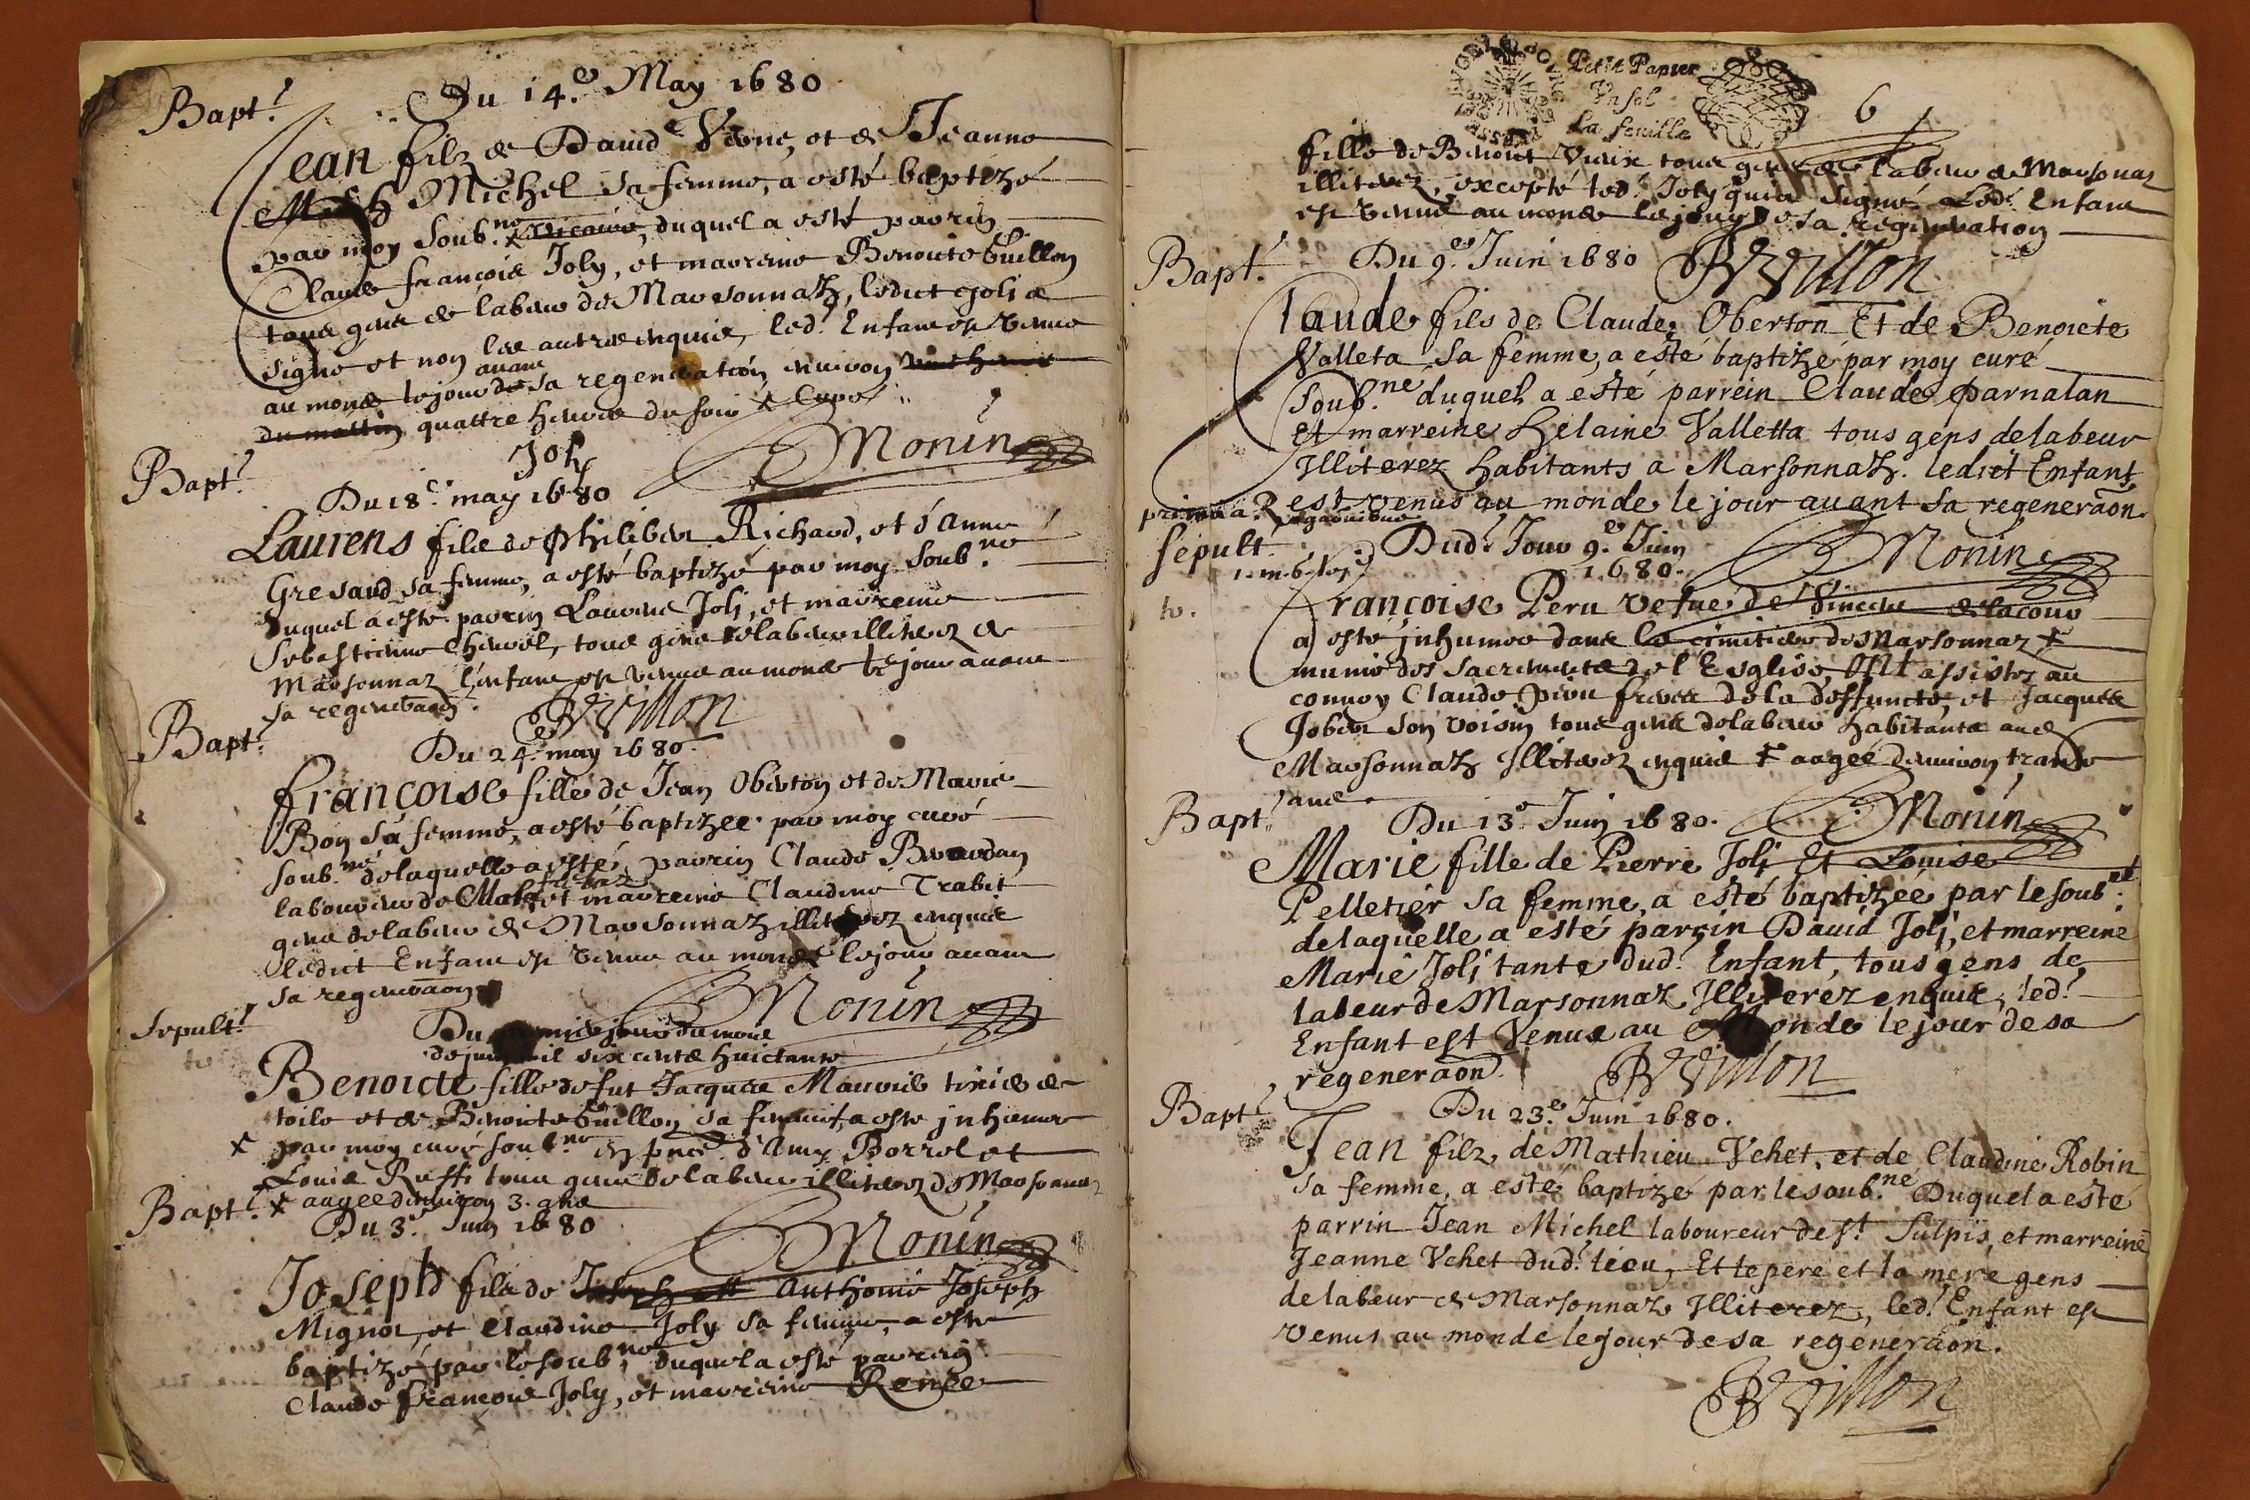 Bapt.t
Du 14.e May 1680
Jean filz de David Vione, et de Jeanne
Michel sa femme, a esté baptizé
par moy soub.né vicaire, duquel a esté parrin
Claude françois Joly, et marreine Benoite Guillon
tous gens de labeur de Marsonnatz, ledict Joli a
signé et non les autres enquis, led.t Enfant est venus
au monde le jour avant sa regeneration environ
du mattin quattre heures du soir Curé
Joly
Monin
Bapt.t
Du 18.e may 1680
Laurens fils de Philiber Richard, et d'anne
Gresaud sa femme, a esté baptizé par moy soub.né
duquel a esté parrin Laurens Joli, et marreine
Sebastienne Chevrel, tous gens de labeur illiterez de
Marsonnaz l'enfant est venus au monde le jour avant
sa regeneraon.
Du 24.e may 1680.
Bapt.t
françoise fille de Jean Oberton et de Marie
Bon sa femme, a esté baptizee par moy curé
soub.né de laquelle a esté parrin Claude
laboureur de et marreine Claudine Trabit
gens de labeur de Marsonnaz illiterez enquis
ledict Enfant est venus au monde le jour avant
sa regeneraon
Monin
Sepult.t
Du jour du mois
de juin mil six cents huictante
Benoicte fille de fut Jacques Maurice tixier de
toile et de Benoite Guillon sa femme, a esté inhumee
par moy curé soub.né en pnce d'Amy Borrel et
Louis Ruffi tous gens de labeur illiterez de Marsonnaz
aagee denviron 3. ans
Bapt.t
Du 3.e Juin 1680
Monin
Joseph fils de Anthoine Joseph
Mignot, et Claudine Joly sa femme, a esté
baptizé par le soub.né duquel a esté parrin
Claude françois Joly, et marreine Renee
Petit Papier
Un sol
La feuille
6
fille de Benoict Vieux tous gens de labeur de Marsonnaz
illiterez, excepté led.t Joly qui a signé. Led.t Enfant
est venus au monde le jour de sa regeneration
Bapt.t
Du 9.e Juin 1680
Claude fils de Claude Oberton Et de Benoiete
Valleta sa femme, a esté baptizé par moy curé
Soub.né duquel a esté parrein Claude Parnalan
Et marreine Helaine Valletta tous gens de labeur
Illiterez habitants a Marsonnatz. ledict Enfant
est venus au monde le jour avant sa regeneraon.
Sepult.t
Dud.t Jour 9.e Juin
1680.
Monin
Françoise Peru vefue de Vincent delacour
a esté inhumee dans le cimitiere de Marsonnaz
munie des sacrements de l'Esglise, Ont assistez au
convoy Claude Piru freres de la deffuncte, et Jacques
Jober son voisin tous gens de labeur habitants aud.
Marsonnatz Illiterez enquis aagee denviron trante
ans.
Bapt.t
Du 13.e Juin 1680.
Monin
Marie fille de Pierre Joli Et Louise
Pelletier sa femme, a esté baptizée par le soub.né
de laquelle a esté parrin David Joli, et marreine
Marie Joli tante dud.t Enfant, tous gens de
labeur de Marsonnaz Illiterez enquis, led.t
Enfant est Venus au Monde le jour de sa
regeneraon.
Bapt.t
Du 23.e Juin 1680.
Jean filz de Mathieu Vehet, et de Claudine Robin
sa femme, a esté baptizé par le soub.né Duquel a esté
parrin Jean Michel laboureur de s.t Sulpis, et marreine
Jeanne Vehet dud.t lieu, Et le pere et la mere gens
de labeur de Marsonnaz Illiterez, led.t Enfant est
venus au monde le jour de sa regeneraon.